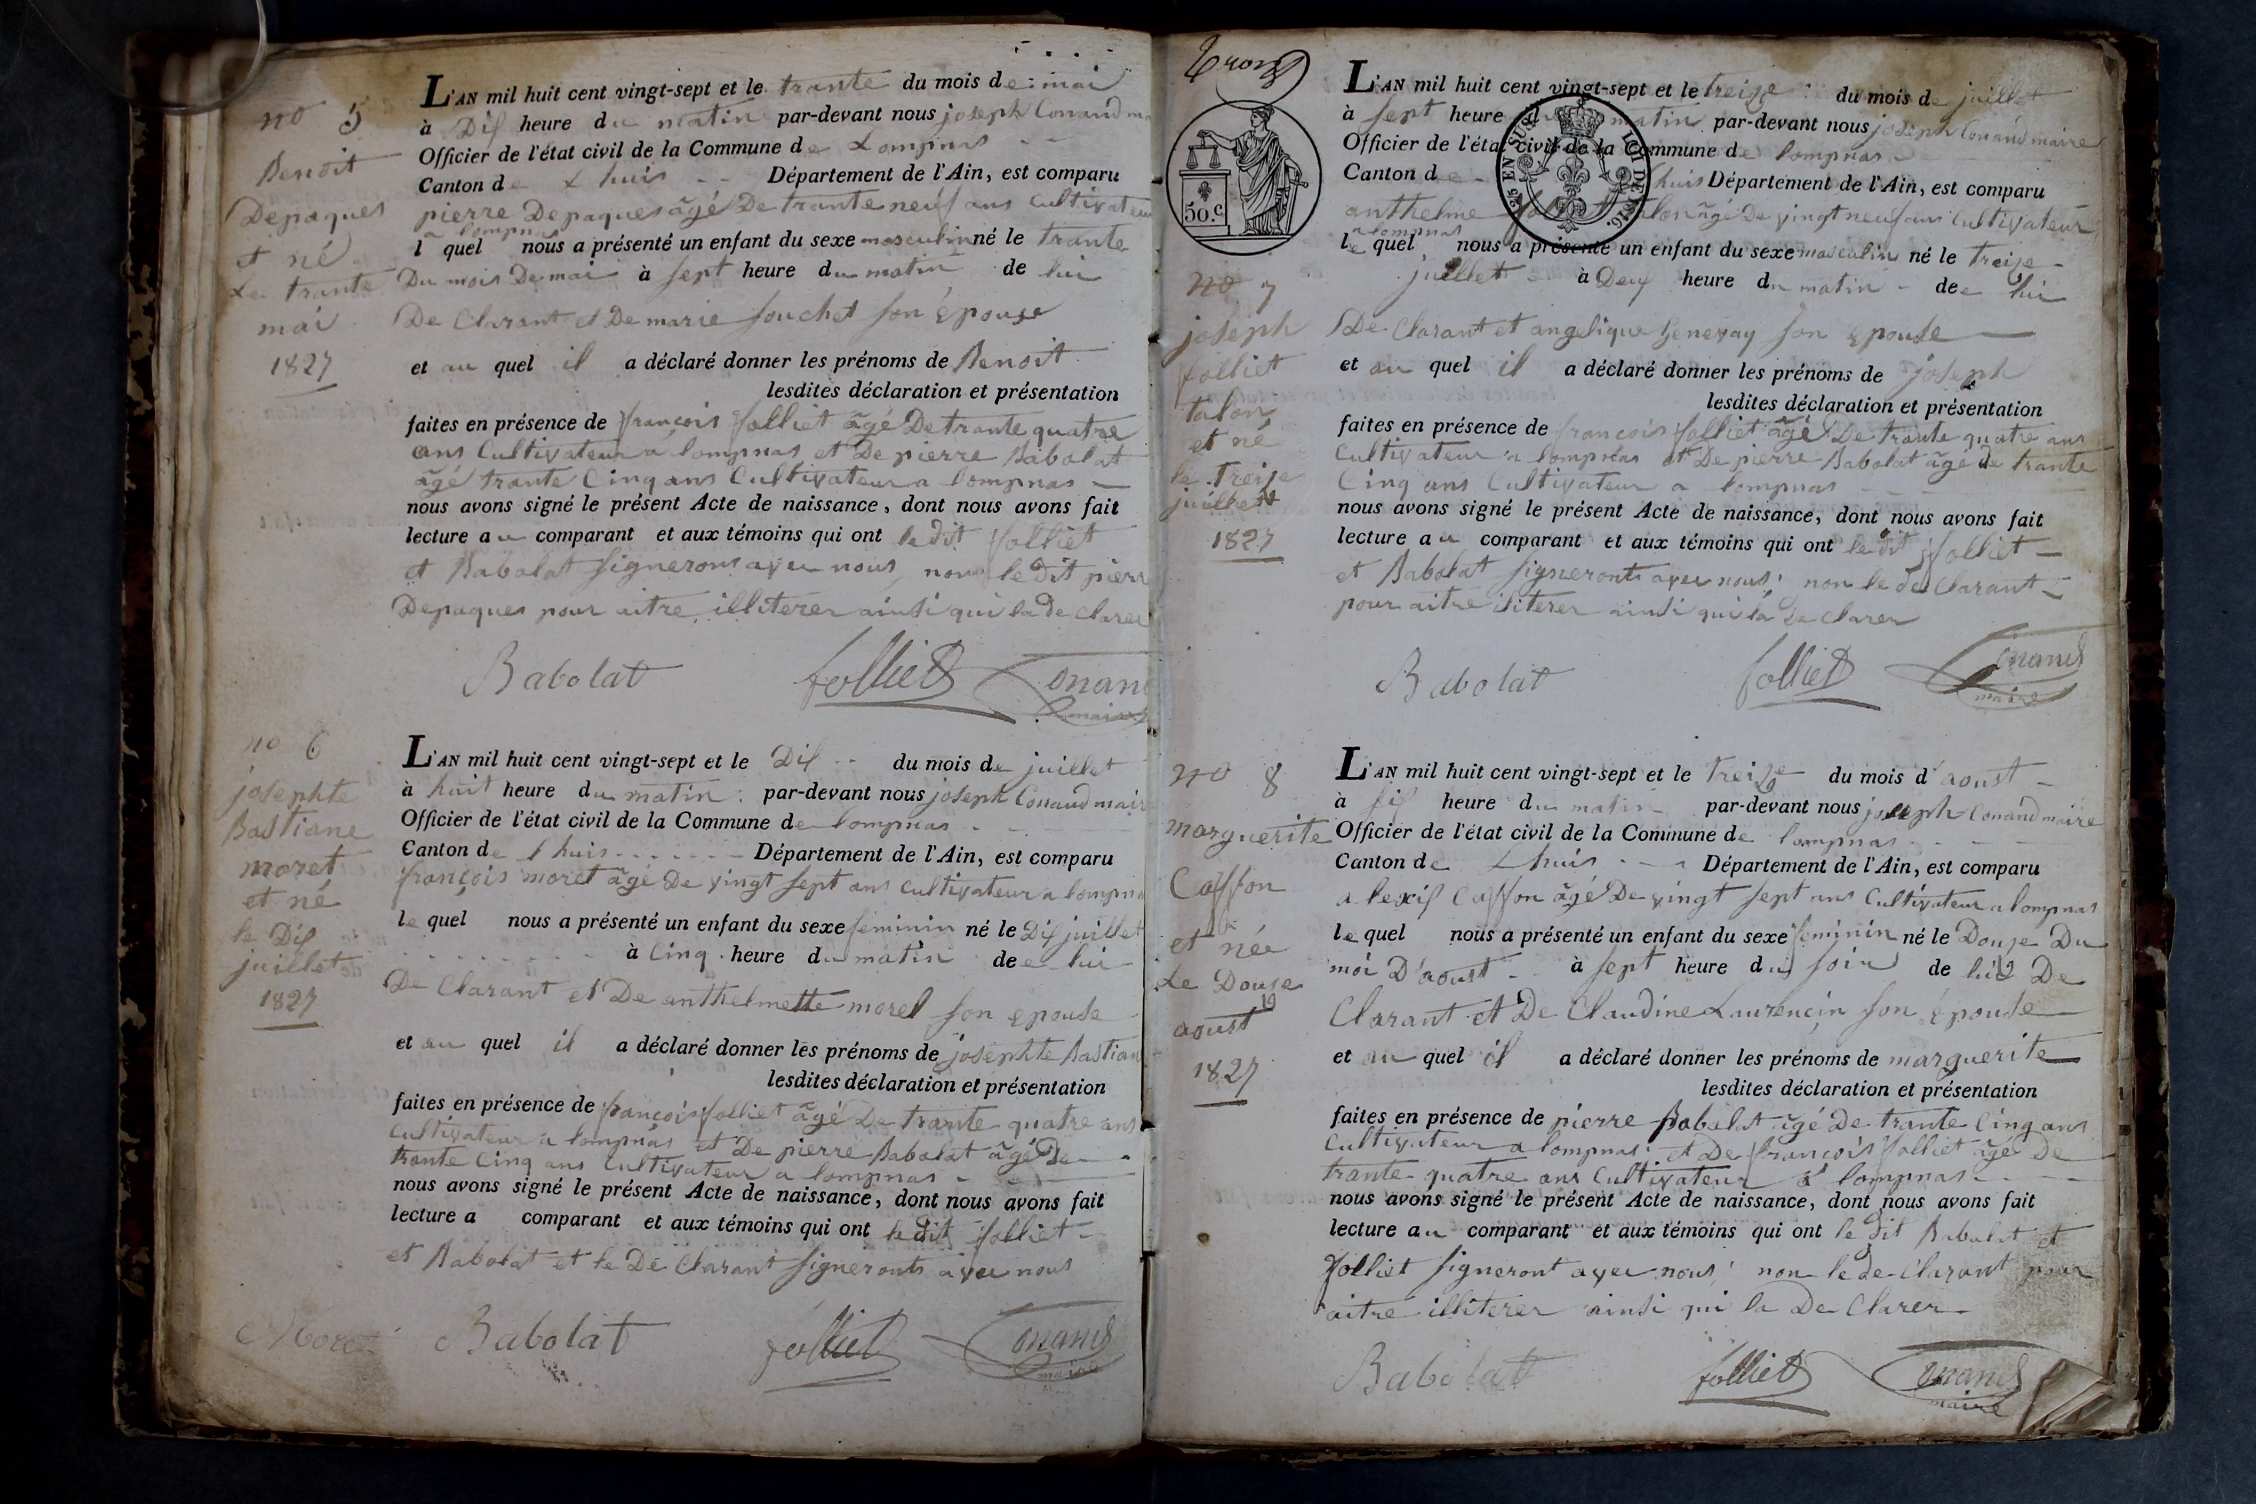 no 5
Benoit
Depaques
et né
Le trante
mai
1827
L'AN mil huit cent vingt-sept et le trante du mois de mai
à Dix heure du matin par-devant nous joseph Conand
Officier de l'état civil de la Commune de Lompnas
Canton de Lhuis Département de l'Ain, est comparu
pierre Depaques âgé De trante neuf ans Cultivateur
a lompnas
l quel nous a présenté un enfant du sexe masculin né le trante
Du mois De mai à sept heure du matin de lui
De Clarant et De marie souchet son Epouse
et au quel il a déclaré donner les prénoms de Benoit
lesdites déclaration et présentation
faites en présence de françois folliet âgé De trante quatre
ans Cultivateur a lompnas et De pierre Babolat
âgé trante Cinq ans Cultivateur a lompnas
nous avons signé le présent Acte de naissance, dont nous avons fait
lecture au comparant et aux témoins qui ont le dit folliet
et Babolat signerons avec nous non le Dit pierre
Depaques pour aitre illiterer ainsi qui la de clarer
Babolat folliet Conand
maire
no 6
josephte
Bastiane
moret
et né
le Dix
juillet
1827
L'AN mil huit cent vingt-sept et le Dix du mois de juillet
à huit heure du matin par-devant nous joseph Conand maire
Officier de l'état civil de la Commune de lompnas
Canton de Lhuis Département de l'Ain, est comparu
françois moret âgé De vingt sept ans cultivateur a lompnas
le quel nous a présenté un enfant du sexe feminin né le Dix juillet
à Cinq heure du matin de lui
De Clarant et De anthelmette morel son epouse
et au quel il a déclaré donner les prénoms de josephte Bastiane
lesdites déclaration et présentation
faites en présence de françois folliet âgé De trante quatre ans
Cultivateur a lompnas et De pierre Babolat âgé De
trante Cinq ans Cultivateur a lompnas
nous avons signé le présent Acte de naissance, dont nous avons fait
lecture a comparant et aux témoins qui ont le dit folliet
et Babolat et le De Clarant signeronts avec nous
Moret Babolat folliet Conand
maire
50 c.
no 7
joseph
folliet
talon
et né
le treize
juillet
1827
L'AN mil huit cent vingt-sept et le treize du mois de juillet
à sept heure du matin par-devant nous joseph Conand maire
Officier de l'état civil de la Commune de lompnas
Canton de Lhuis Département de l'Ain, est comparu
anthelme folliet talon âgé De vingt neuf ans Cultivateur
a lompnas
le quel nous a présenté un enfant du sexe masculin né le treize
juillet à Deux heure du matin de lui
De Clarant et angelique Genevay son Epouse
et au quel il a déclaré donner les prénoms de joseph
lesdites déclaration et présentation
faites en présence de francois folliet âgé De trante quatre ans
Cultivateur a lompnas et De pierre Babolat âgé de trante
Cinq ans Cultivateur a lompnas
nous avons signé le présent Acte de naissance, dont nous avons fait
lecture au comparant et aux témoins qui ont le dit folliet
et Babolat signeronts avec nous non le de Clarant
pour aitre iliterer ainsi qui la De clarer
Babolat folliet Conand
maire
no 8
marguerite
Caffon
et née
Le Douze
aoust
1827
L'AN mil huit cent vingt-sept et le treize du mois d'aoust
à six heure du matin par-devant nous joseph Conand maire
Officier de l'état civil de la Commune de lompnas
Canton de Lhuis Département de l'Ain, est comparu
alexis Caffon âgé De vingt sept ans Cultivateur a lompnas
le quel nous a présenté un enfant du sexe feminin né le Douze Du
moi D'aoust à sept heure du soir de lui De
Clarant et De Claudine Laurencin son Epouse
et au quel il a déclaré donner les prénoms de marguerite
lesdites déclaration et présentation
faites en présence de pierre Babolat âgé De trante Cinq ans
Cultivateur a lompnas et De françois folliet âgé De
trante quatre ans Cultivateur a lompnas
nous avons signé le présent Acte de naissance, dont nous avons fait
lecture au comparant et aux témoins qui ont le dit Babolat et
folliet signeront avec nous non le de Clarant pour
aitre illiterer ainsi qui la De Clarer
Babolat folliet Conand
maire